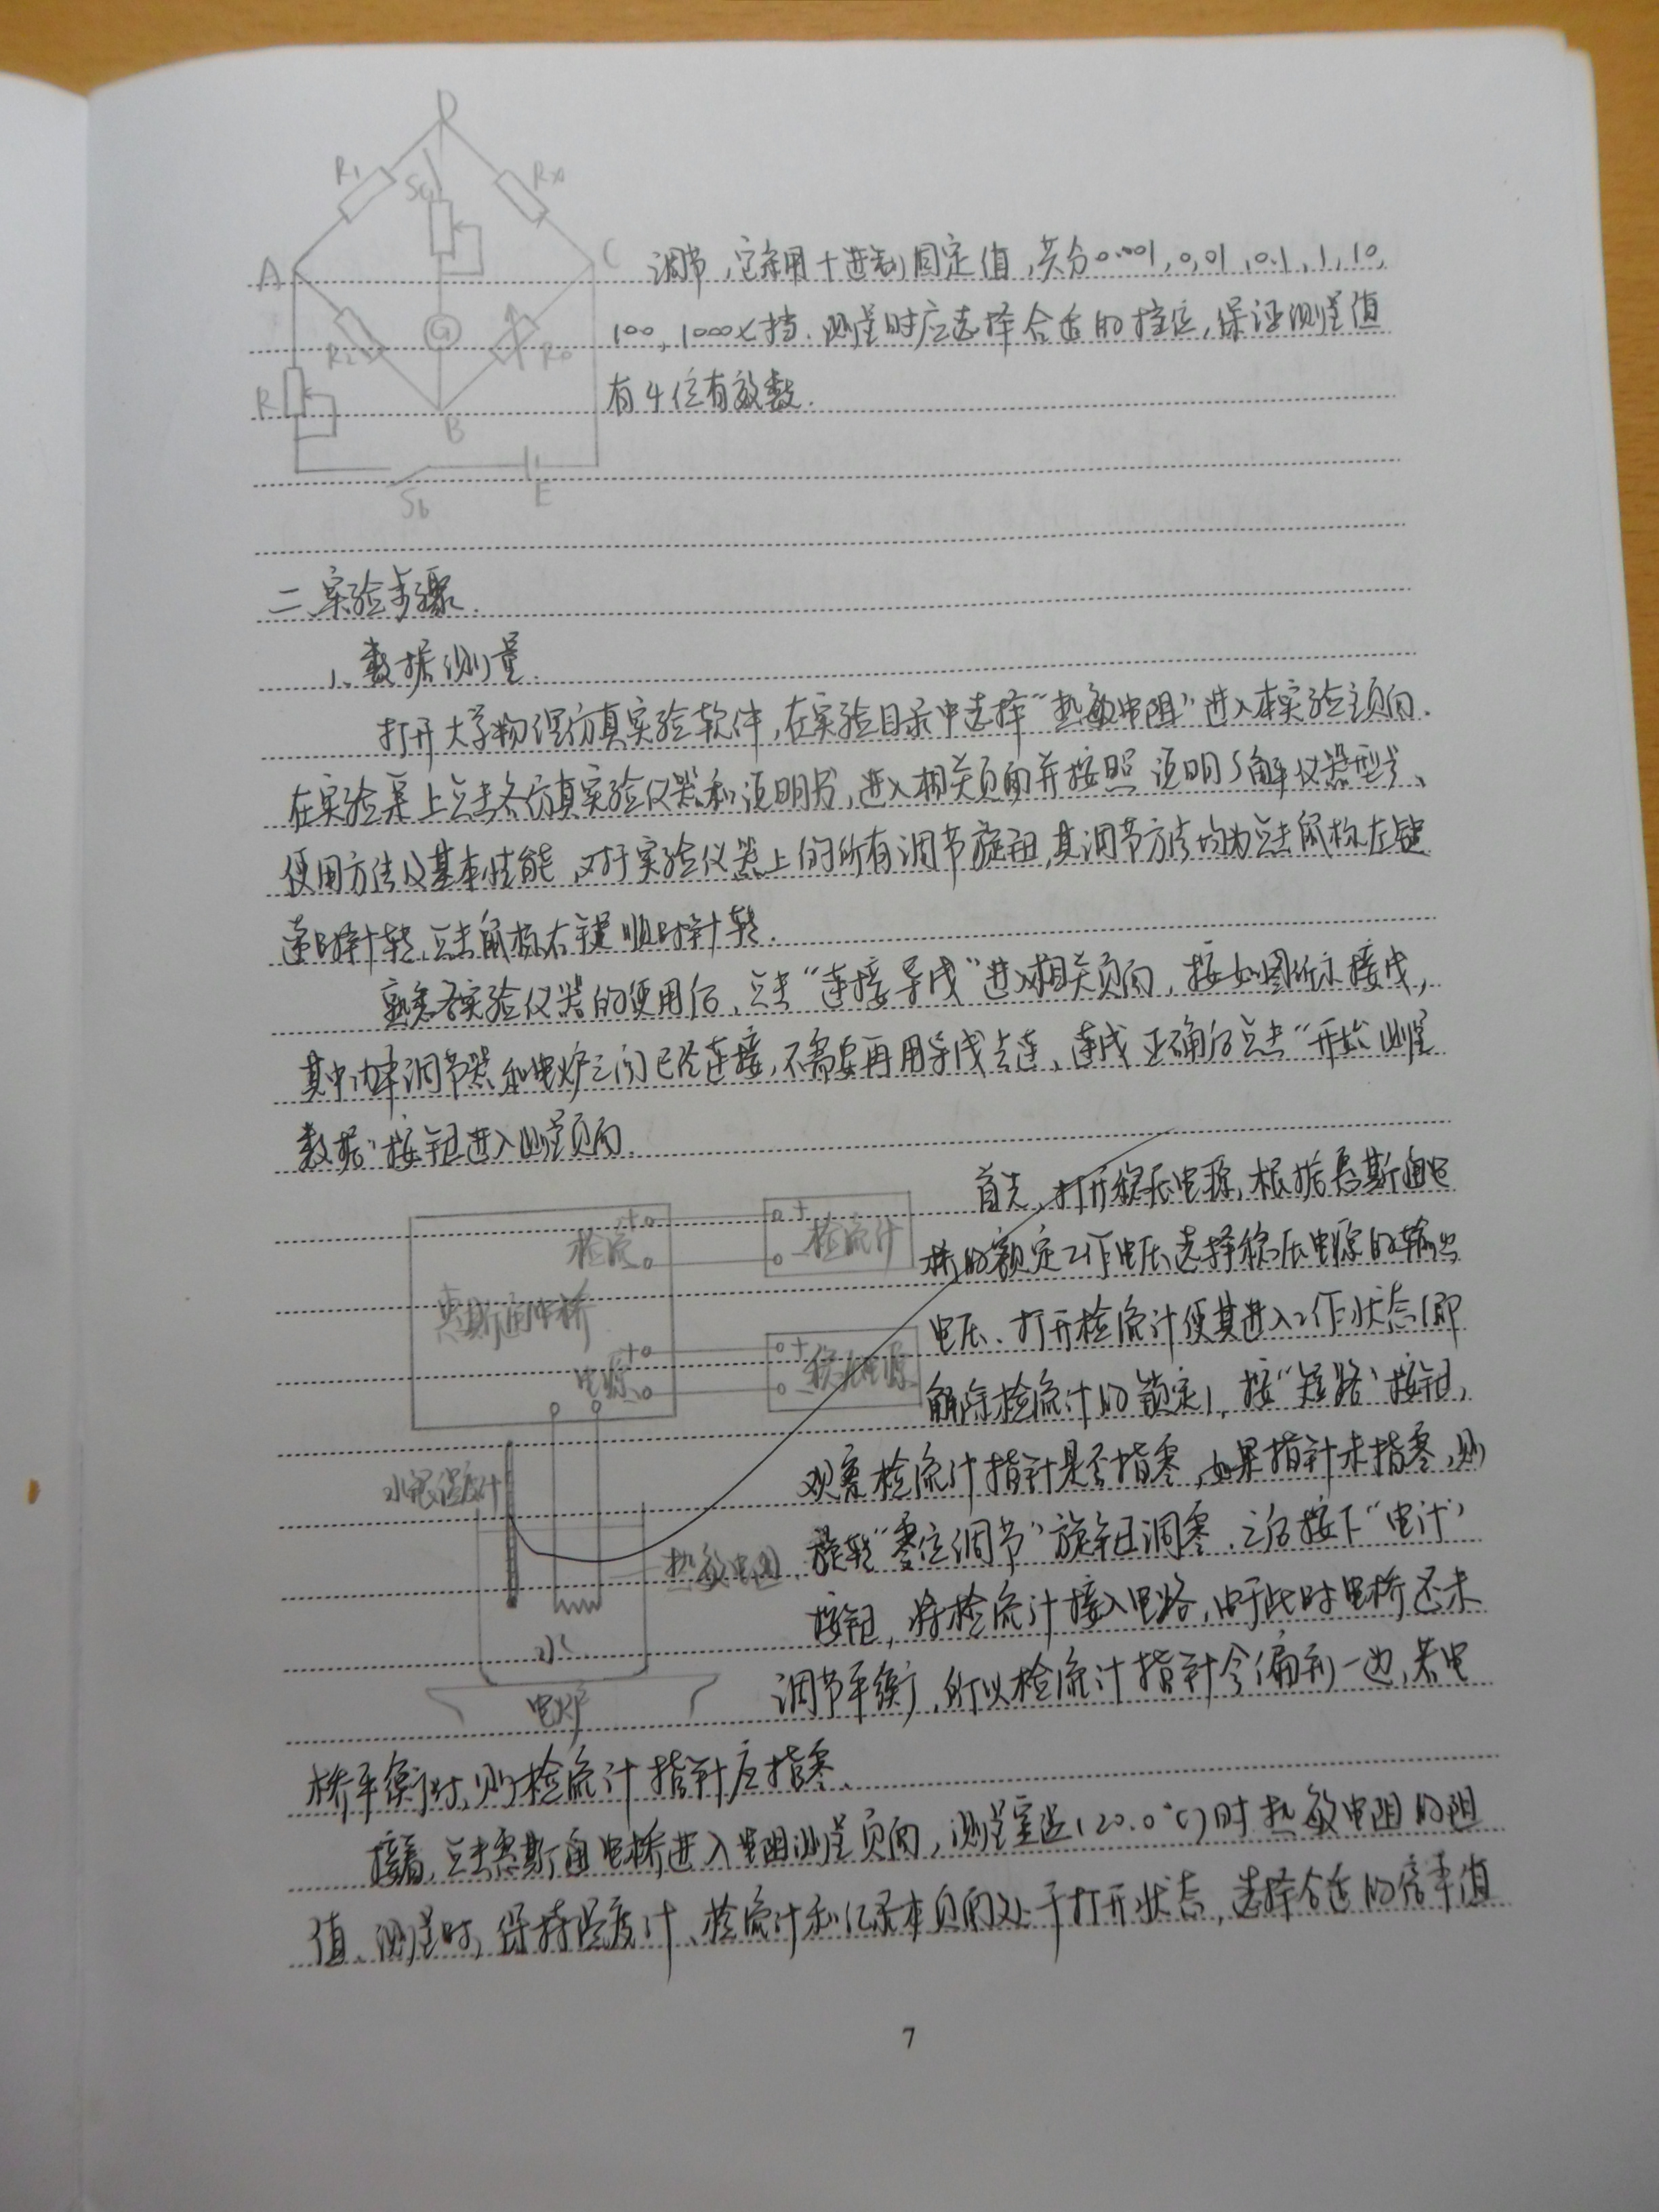 D
R1
SG
Rx
A
C
R2
G
R0
R
B
Sb
E
调节,它采用十进制固定值,共分0.001,0.01,0.1,1,10,
100,1000七挡.测量时应选择合适的挡位,保证测量值
有4位有效数.
二、实验步骤.
1、数据测量.
打开大学物理仿真实验软件,在实验目录中选择“热敏电阻”进入本实验主页面.
在实验桌上点击各仿真实验仪器和说明书,进入相关页面并按照说明了解仪器型号、
使用方法及基本性能,对于实验仪器上的所有调节旋钮,其调节方法均为点击鼠标左键
逆时针转,点击鼠标右键顺时针转.
熟悉各实验仪器的使用后,点击“连接导线”进入相关页面,按如图所示接线,
其中功率调节器和电炉之间已经连接,不需要再用导线去连、连线正确后点击“开始测量
数据”按钮进入测量页面.
首先,打开稳压电源,根据惠斯通电
桥的额定工作电压选择稳压电源的输出
电压、打开检流计使其进入工作状态(即
解除检流计的锁定),按“短路”按钮,
观察检流计指针是否指零,如果指针未指零,则
旋转“零位调节”旋钮调零.之后按下“电计”
按钮,将检流计接入电路,由于此时电桥还未
调节平衡,所以检流计指针会偏到一边,若电
桥平衡时,则检流计指针应指零、
惠斯通电桥
检流
+
-
+
-
检流计
电源
+
-
+
-
稳压电源
水银温度计
热敏电阻
水
电炉
接着,点击惠斯通电桥进入电阻测量页面,测量室温(20.0℃)时热敏电阻的阻
值、测量时,保持温度计、检流计和记录本页面处于打开状态,选择合适的倍率值
7